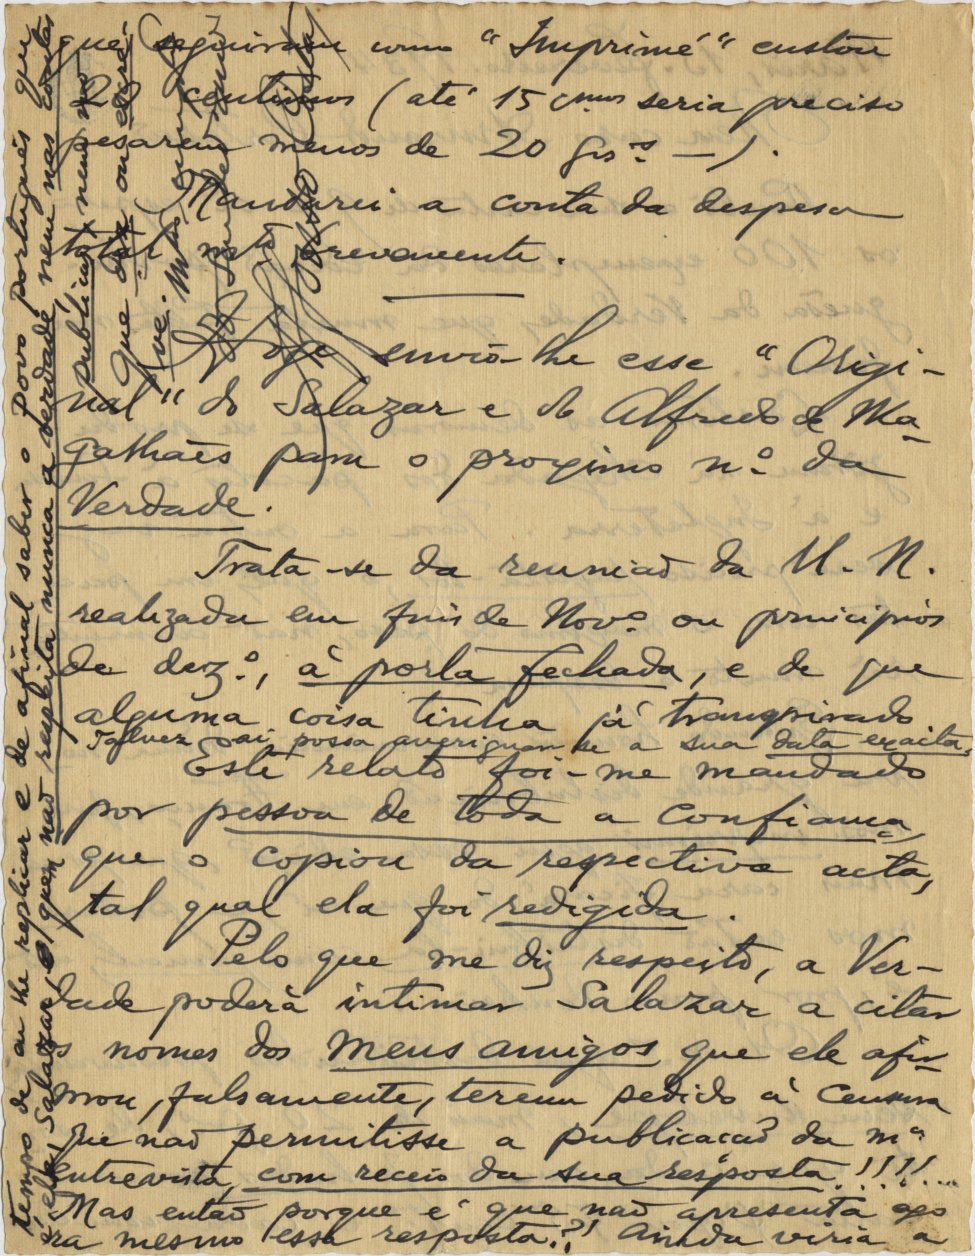 que seguiram como "Imprimé" custou
20 centimos (até 15 cmos seria preciso
pesarem menos de 20 grs —).
Mandarei a conta da despesa
total, mto brevemente.
Hoje envio-lhe esse "Origi-
nal" do Salazar e do Alfredo de Ma-
galhães para o proximo nº da
Verdade.
Trata-se da reunião da U. N.
realizada em fins de Novº ou principios
de dezº, á porta fechada, e de que
alguma coisa tinha já transpirado.
Talvez aí possa averiguar-se a sua data exacta.
Este relato foi-me mandado
por pessoa de toda a confiança,
que o copiou da respectiva acta,
tal qual ela foi redigida.
Pelo que me diz respeito, a Ver-
dade poderá intimar Salazar a citar
os nomes dos meus amigos que ele afir-
mou, falsamente, terem pedido á Censura
que não permitisse a publicação da mª
entrevista, com receio da sua resposta!!!!...
Mas então porque é que não apresenta ago
ra mesmo essa resposta?! Ainda viria a
tempo de au lhe replicar e de afinal saber o Povo português que
é ele, Salazar, quem não respeita nunca a verdade, nem nas contas
publicas, nem no
que diz ou escre
ve.